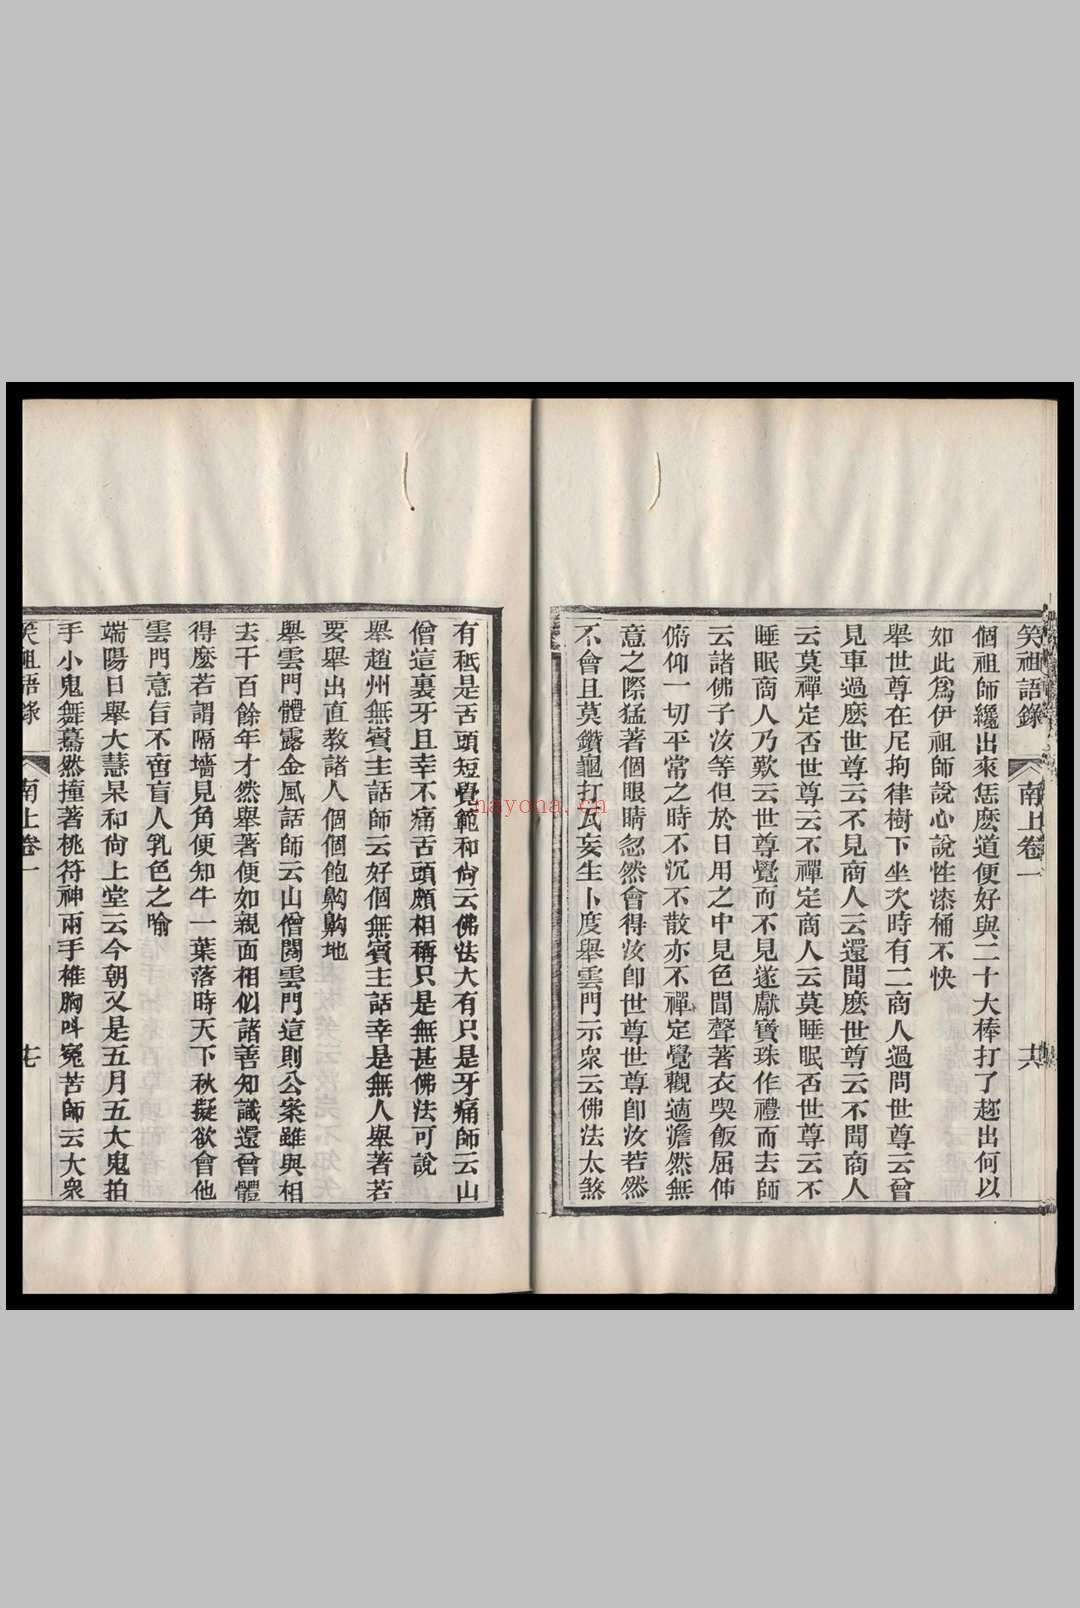 笑祖語錄 南上卷一 共
個祖師纔出來恁麽道便好與二十大棒打了趂出何以
如此爲伊祖師說心說性漆桶不快
舉世尊在尼拘律樹下坐次時有二商人過問世尊云曾
見車過麽世尊云不見商人云還聞麽世尊云不聞商人
云莫禪定否世尊云不禪定商人云莫睡眠否世尊云不
睡眠商人乃歎云世尊覺而不見遂獻寶珠作禮而去師
云諸佛子汝等但於日用之中見色聞聲著衣喫飯屈伸
俯仰一切平常之時不沉不散亦不禪定覺觀適澹然無
意之際猛著個眼睛忽然會得汝卽世尊世尊卽汝若然
不會且莫鑽龜打瓦妄生卜度舉雲門示衆云佛法太煞
有秪是舌頭短覺範和尙云佛法大有只是牙痛師云山
僧這裏牙且幸不痛舌頭頗相稱只是無甚佛法可說
舉趙州無賓主話師云好個無賓主話幸是無人舉著若
要舉出直教諸人個個飽齁齁地
舉雲門體露金風話師云山僧閱雲門這則公案雖與相
去千百餘年才然舉著便如親面相似諸善知識還曾體
得麽若謂隔墻見角便知牛一葉落時天下秋擬欲會他
雲門意旨不啻盲人乳色之喻
端陽日舉大慧杲和尙上堂云今朝又是五月五大鬼拍
手小鬼舞驀然撞著桃符神兩手椎胸呌寃苦師云大衆
笑祖語錄 南上卷一 七
nayona.cn